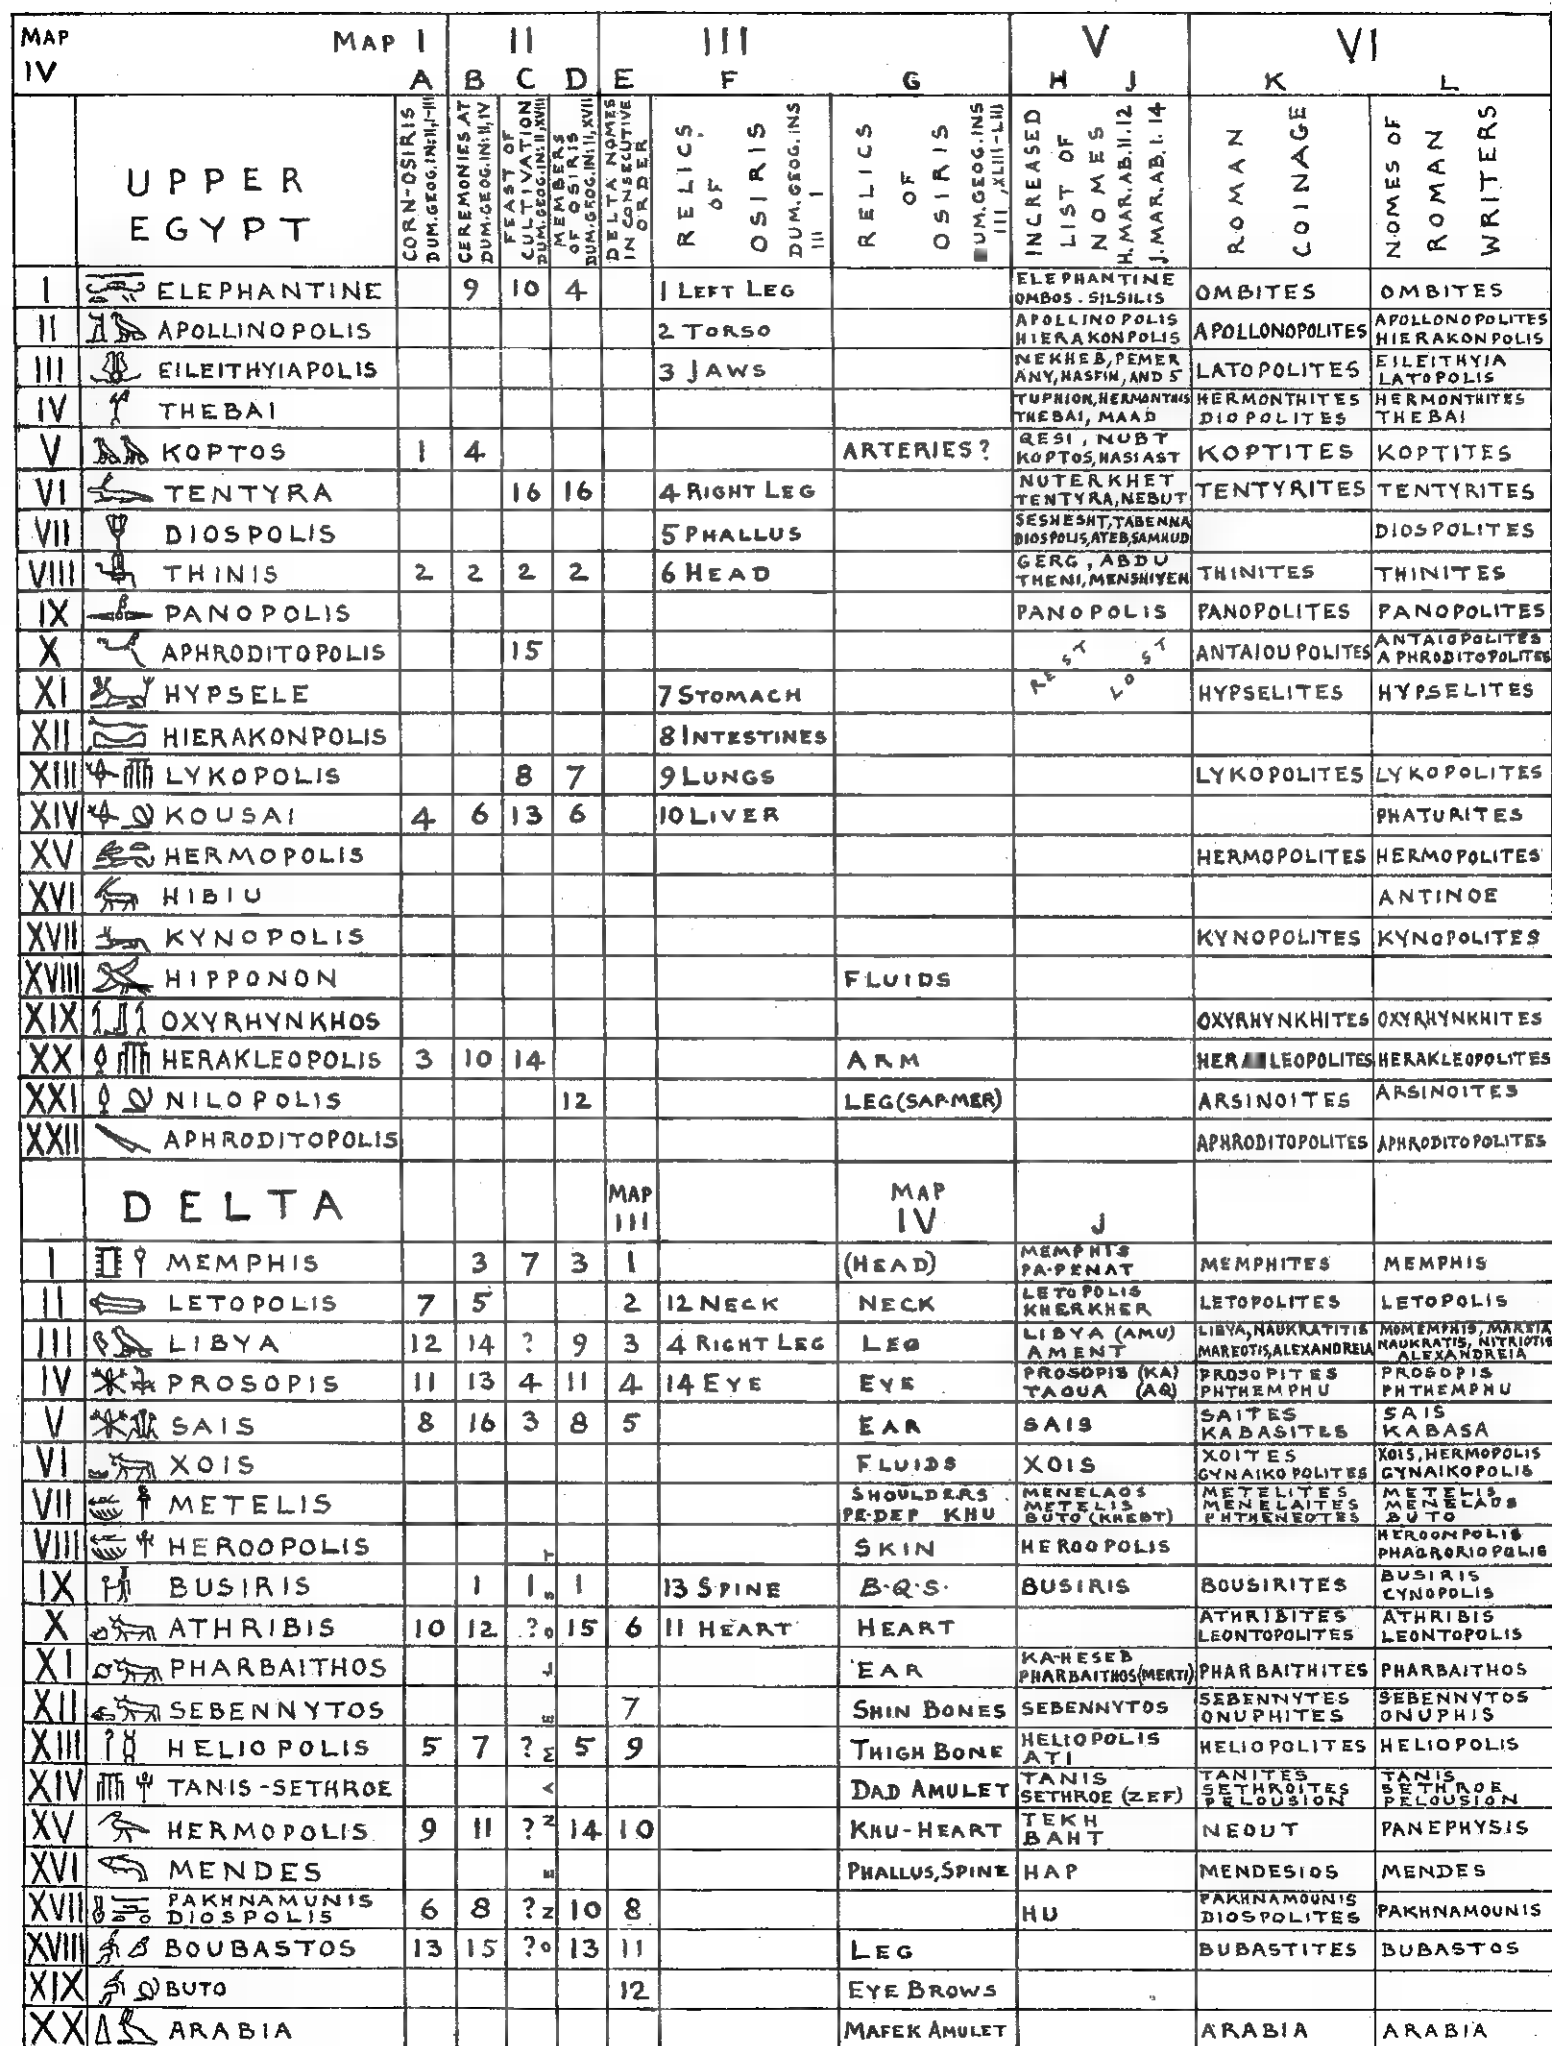 MAP MAP I II III V VI
IV A B C D E F G H J K L
UPPER EGYPT
CORN-OSIRIS DUM.GEOG.IN:II,I-III
CEREMONIES AT DUM.GEOG.IN:II,IV
FEAST OF CULTIVATION DUM.GEOG.IN:II,XVIII
MEMBERS OF OSIRIS DUM.GEOG.IN:II,XVII
DELTA NOMES IN CONSECUTIVE ORDER
RELICS OF OSIRIS DUM.GEOG.INS III I
RELICS OF OSIRIS DUM.GEOG.INS III, XLIII-LIII
INCREASED LIST OF NOMES H.MAR.AB.II.12 J.MAR.AB.I.14
ROMAN COINAGE
NOMES OF ROMAN WRITERS
I ELEPHANTINE 9 10 4 1 LEFT LEG ELEPHANTINE OMBOS-SILSILIS OMBITES OMBITES
II APOLLINOPOLIS 2 TORSO APOLLINOPOLIS HIERAKONPOLIS APOLLONOPOLITES APOLLONOPOLITES HIERAKONPOLIS
III EILEITHYIAPOLIS 3 JAWS NEKHEB, PEMER ANY, HASFIN, AND 5 LATOPOLITES EILEITHYIA LATOPOLIS
IV THEBAI TUPHION, HERMONTHIS THEBAI, MAAD HERMONTHITES DIOPOLITES HERMONTHITES THEBAI
V KOPTOS 1 4 ARTERIES? QESI, NUBT KOPTOS, HASIAST KOPTITES KOPTITES
VI TENTYRA 16 16 4 RIGHT LEG NUTERKHET TENTYRA, NEBUT TENTYRITES TENTYRITES
VII DIOSPOLIS 5 PHALLUS SESHESHT, TABENNA DIOSPOLIS, ATEB, SAMHUD DIOSPOLITES
VIII THINIS 2 2 2 2 6 HEAD GERG, ABDU THENI, MENSHIYEH THINITES THINITES
IX PANOPOLIS PANOPOLIS PANOPOLITES PANOPOLITES
X APHRODITOPOLIS 15 REST LOST ANTAIOUPOLITES ANTAIOPOLITES APHRODITOPOLITES
XI HYPSELE 7 STOMACH HYPSELITES HYPSELITES
XII HIERAKONPOLIS 8 INTESTINES
XIII LYKOPOLIS 8 7 9 LUNGS LYKOPOLITES LYKOPOLITES
XIV KOUSAI 4 6 13 6 10 LIVER PHATURITES
XV HERMOPOLIS HERMOPOLITES HERMOPOLITES
XVI HIBIU ANTINOE
XVII KYNOPOLIS KYNOPOLITES KYNOPOLITES
XVIII HIPPONON FLUIDS
XIX OXYRHYNKHOS OXYRHYNKHITES OXYRHYNKHITES
XX HERAKLEOPOLIS 3 10 14 ARM HERAKLEOPOLITES HERAKLEOPOLITES
XXI NILOPOLIS 12 LEG (SAP-MER) ARSINOITES ARSINOITES
XXII APHRODITOPOLIS APHRODITOPOLITES APHRODITOPOLITES
DELTA MAP III MAP IV J
I MEMPHIS 3 7 3 1 (HEAD) MEMPHIS PA-PENAT MEMPHITES MEMPHIS
II LETOPOLIS 7 5 2 12 NECK NECK LETOPOLIS KHERKHER LETOPOLITES LETOPOLIS
III LIBYA 12 14 ? 9 3 4 RIGHT LEG LEG LIBYA (AMU) AMENT LIBYA, NAUKRATITIS MAREOTIS, ALEXANDREIA MOMEMPHIS, MAREIA NAUKRATIS, NITRIOTIS ALEXANDREIA
IV PROSOPIS 11 13 4 11 4 14 EYE EYE PROSOPIS (KA) TAOUA (AQ) PROSOPITES PHTHEMPHU PROSOPIS PHTHEMPHU
V SAIS 8 16 3 8 5 EAR SAIS SAITES KABASITES SAIS KABASA
VI XOIS FLUIDS XOIS XOITES GYNAIKOPOLITES XOIS, HERMOPOLIS GYNAIKOPOLIS
VII METELIS SHOULDERS PE-DEP KHU MENELAOS METELIS BUTO (KHEBT) METELITES MENELAITES PHTHENEOTES METELIS MENELAOS BUTO
VIII HEROOPOLIS SKIN HEROOPOLIS HEROONPOLIS PHAGRORIOPOLIS
IX BUSIRIS 1 1 1 13 SPINE B.Q.S. BUSIRIS BOUSIRITES BUSIRIS CYNOPOLIS
X ATHRIBIS 10 12 ? 15 6 11 HEART HEART ATHRIBITES LEONTOPOLITES ATHRIBIS LEONTOPOLIS
XI PHARBAITHOS EAR KA-HESEB PHARBAITHOS (MERTI) PHARBAITHITES PHARBAITHOS
XII SEBENNYTOS 7 SHIN BONES SEBENNYTOS SEBENNYTES ONUPHITES SEBENNYTOS ONUPHIS
XIII HELIOPOLIS 5 7 ? 5 9 THIGH BONE HELIOPOLIS ATI HELIOPOLITES HELIOPOLIS
XIV TANIS-SETHROE DAD AMULET TANIS SETHROE (ZEF) TANITES SETHROITES PELOUSION TANIS SETHROE PELOUSION
XV HERMOPOLIS 9 11 ? 14 10 KHU-HEART TEKH BAHT NEOUT PANEPHYSIS
XVI MENDES PHALLUS, SPINE HAP MENDESIOS MENDES
XVII PAKHNAMUNIS DIOSPOLIS 6 8 ? 10 8 HU PAKHNAMOUNIS DIOSPOLITES PAKHNAMOUNIS
XVIII BOUBASTOS 13 15 ? 13 11 LEG BUBASTITES BUBASTOS
XIX BUTO 12 EYE BROWS
XX ARABIA MAFEK AMULET ARABIA ARABIA
NO NZENAMES LOST